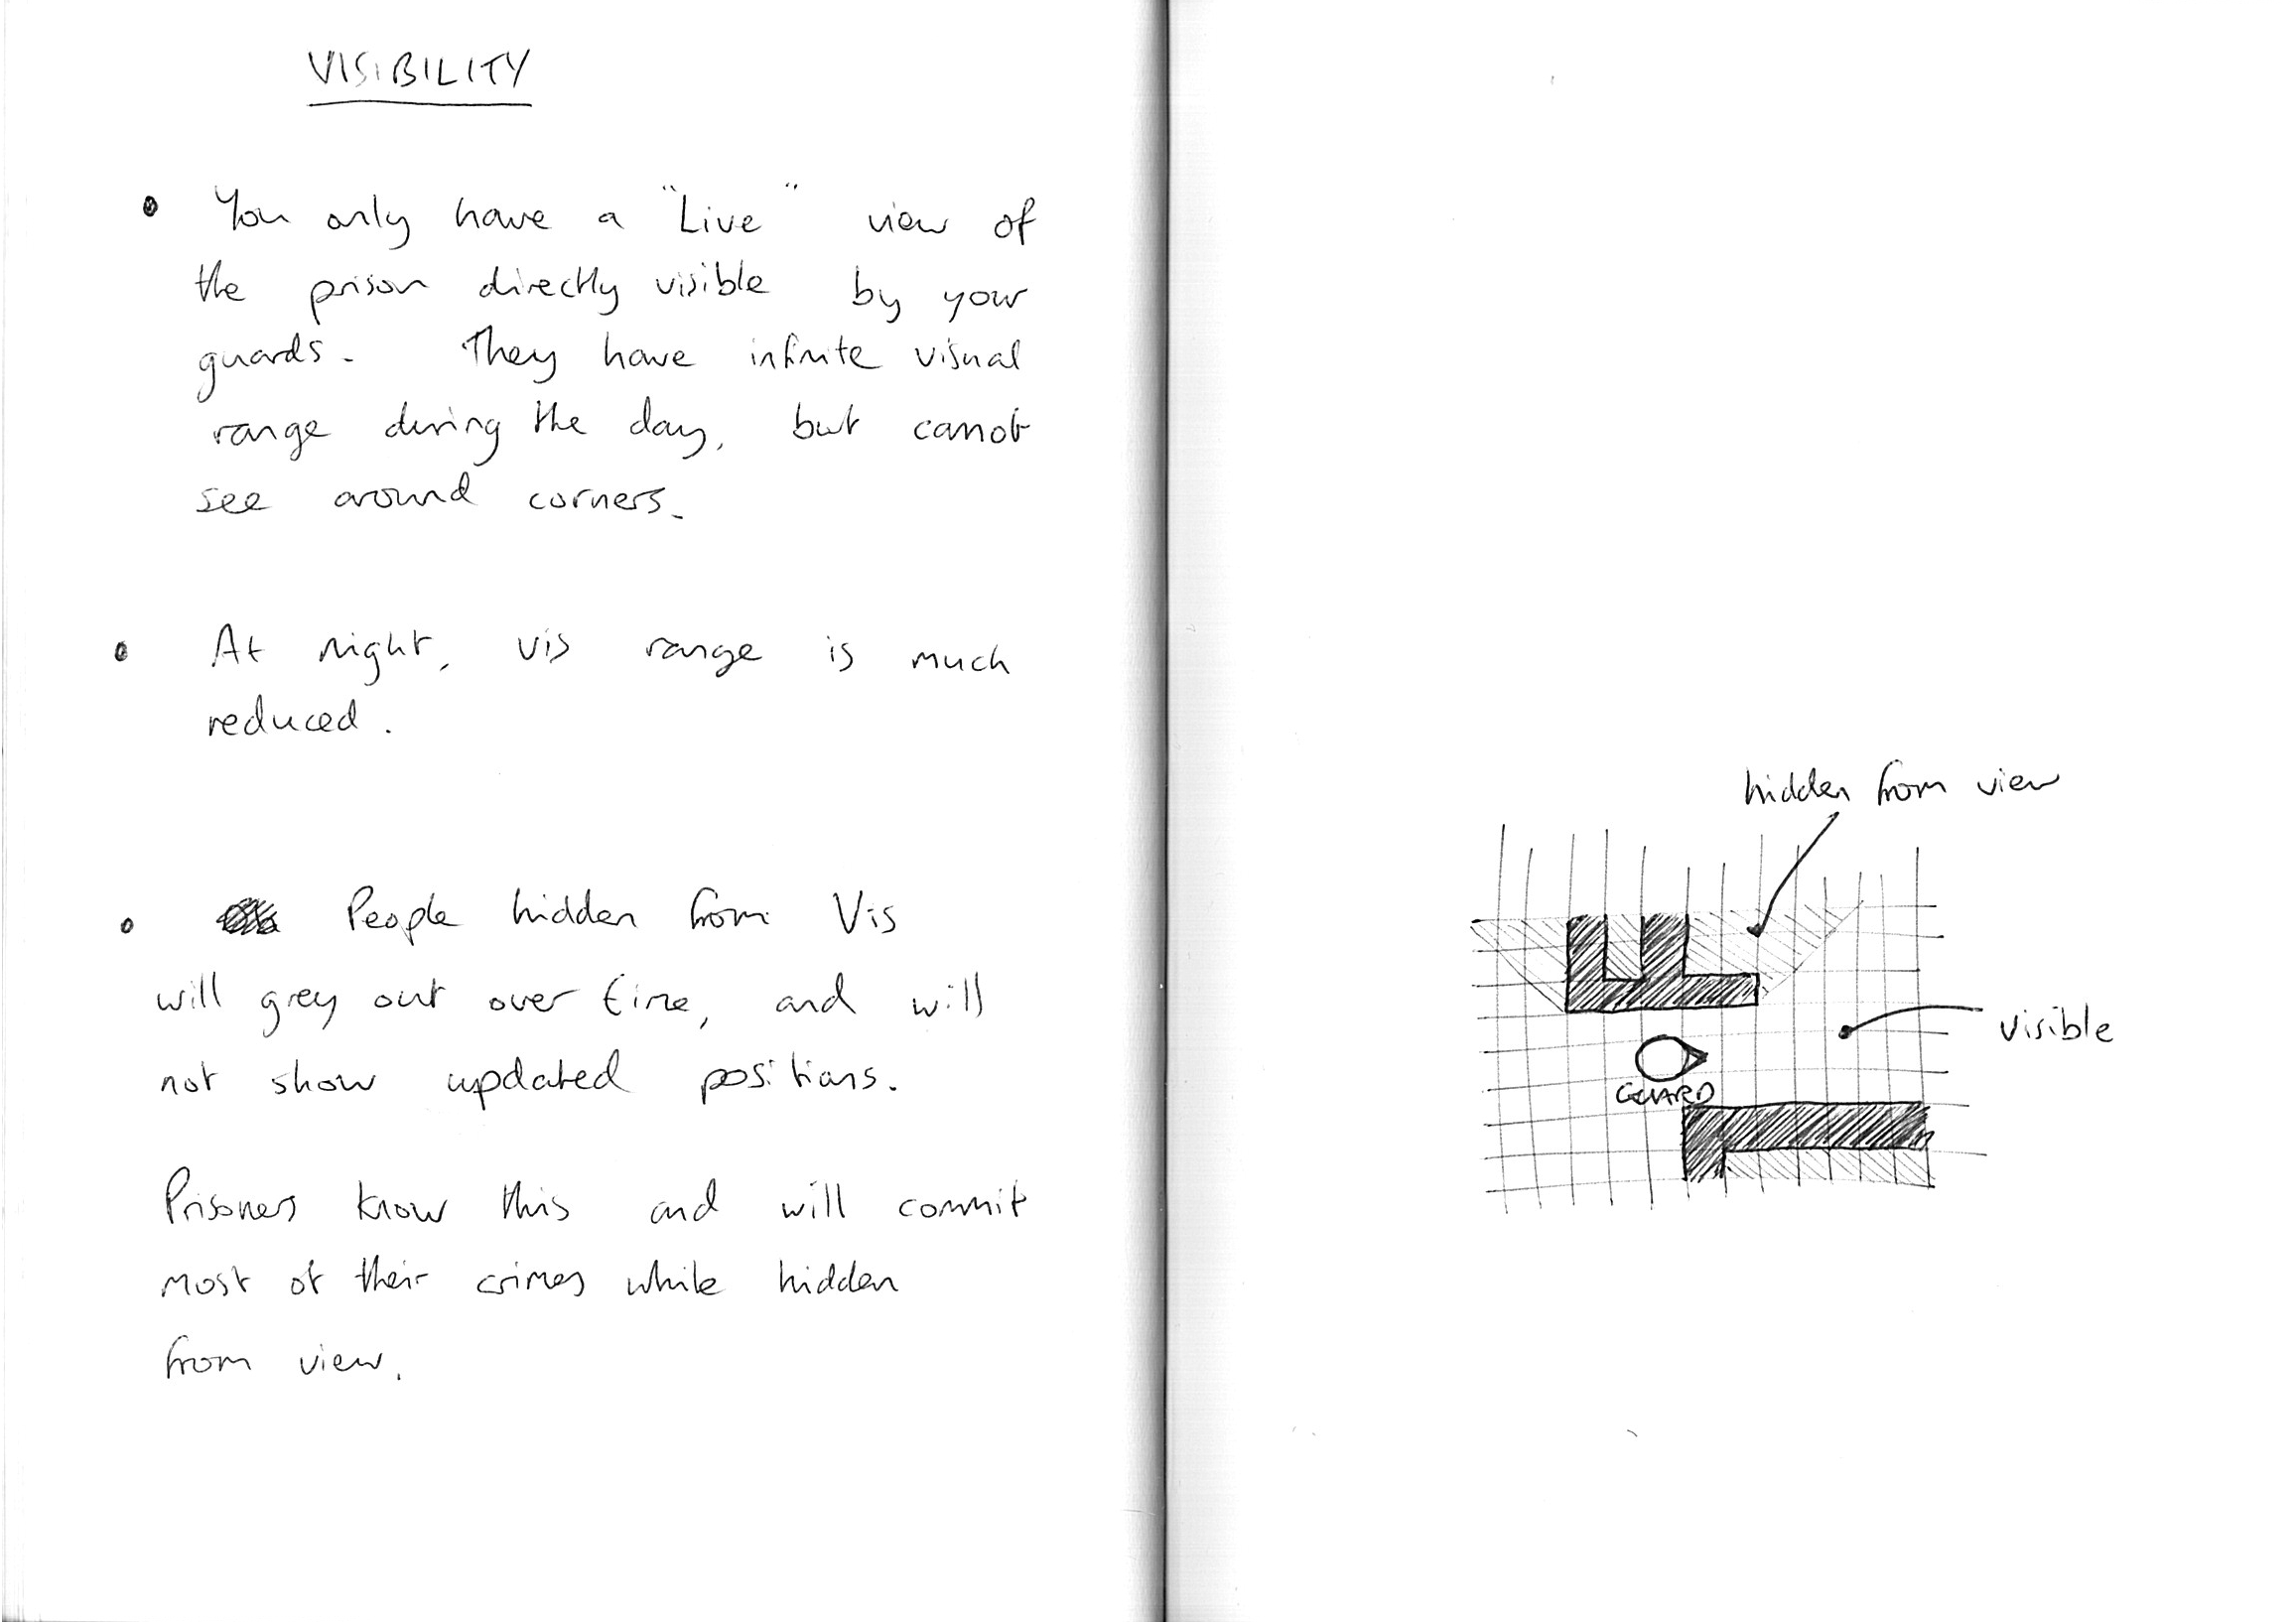 VISIBILITY
You only have a "Live" view of
the prison directly visible by your
guards. They have infinite visual
range during the day, but cannot
see around corners.
At night, vis range is much
reduced.
People hidden from Vis
will grey out over time, and will
not show updated positions.
Prisoners know this and will commit
most of their crimes while hidden
from view.
hidden from view
visible
GUARD